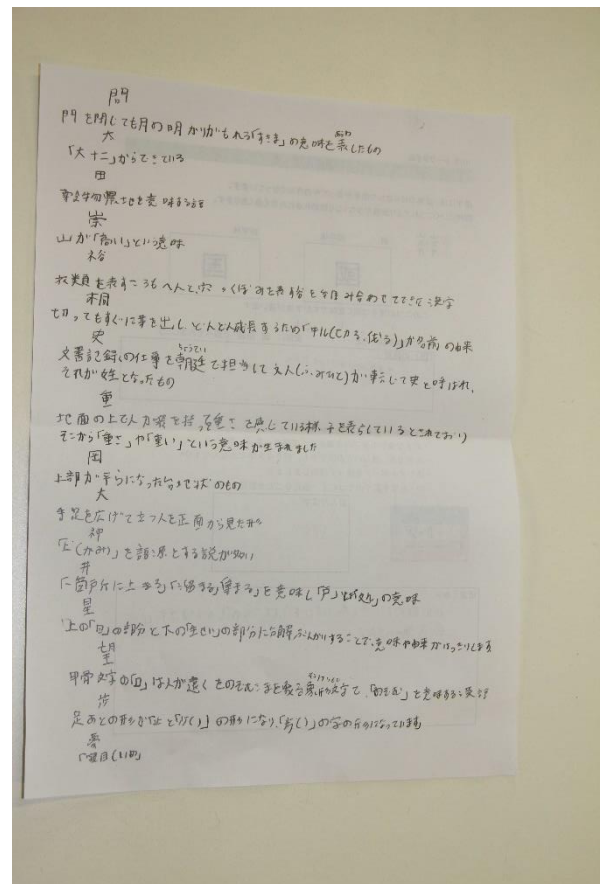 門を閉じても月の明かりがもれる「すきま」の意味を表したもの
大
「大十二」からできている
田
穀物
地を意味する語
崇
山が「高い」という意味
裕
衣類を表すころもへんと、
くぼみを表す谷を組み合わせてできた漢字
桐
切ってもすぐに芽を出し どんどん成長するため「キル(切る、伐る)」が名前の由来
史
文書記録の仕事を朝廷で担当して文人(ふみひと)が転じて史と呼ばれ、
それが姓となったもの
重
地面の上で人力
を持って重さを感じている様子を表らしているとされており
そこから「重さ」や「重い」という意味が生まれました
岡
上部が平らになった台地状のもの
大
手足を広げて立つ人を正面から見た形
神
(かみ)」を語源とする説が多い
井
「一箇所に止める」
を意味し「戸」
の意味
星
上の「日」の部分と下の「生せい」の部分に分解
することで、意味や由来がはっきりします
望
甲骨文字の
は人が遠くをのぞむ
象形文字で、「のぞむ」を意味する漢字
歩
足あとの形が「止」と
の形になり、
の字の形になっています
夢